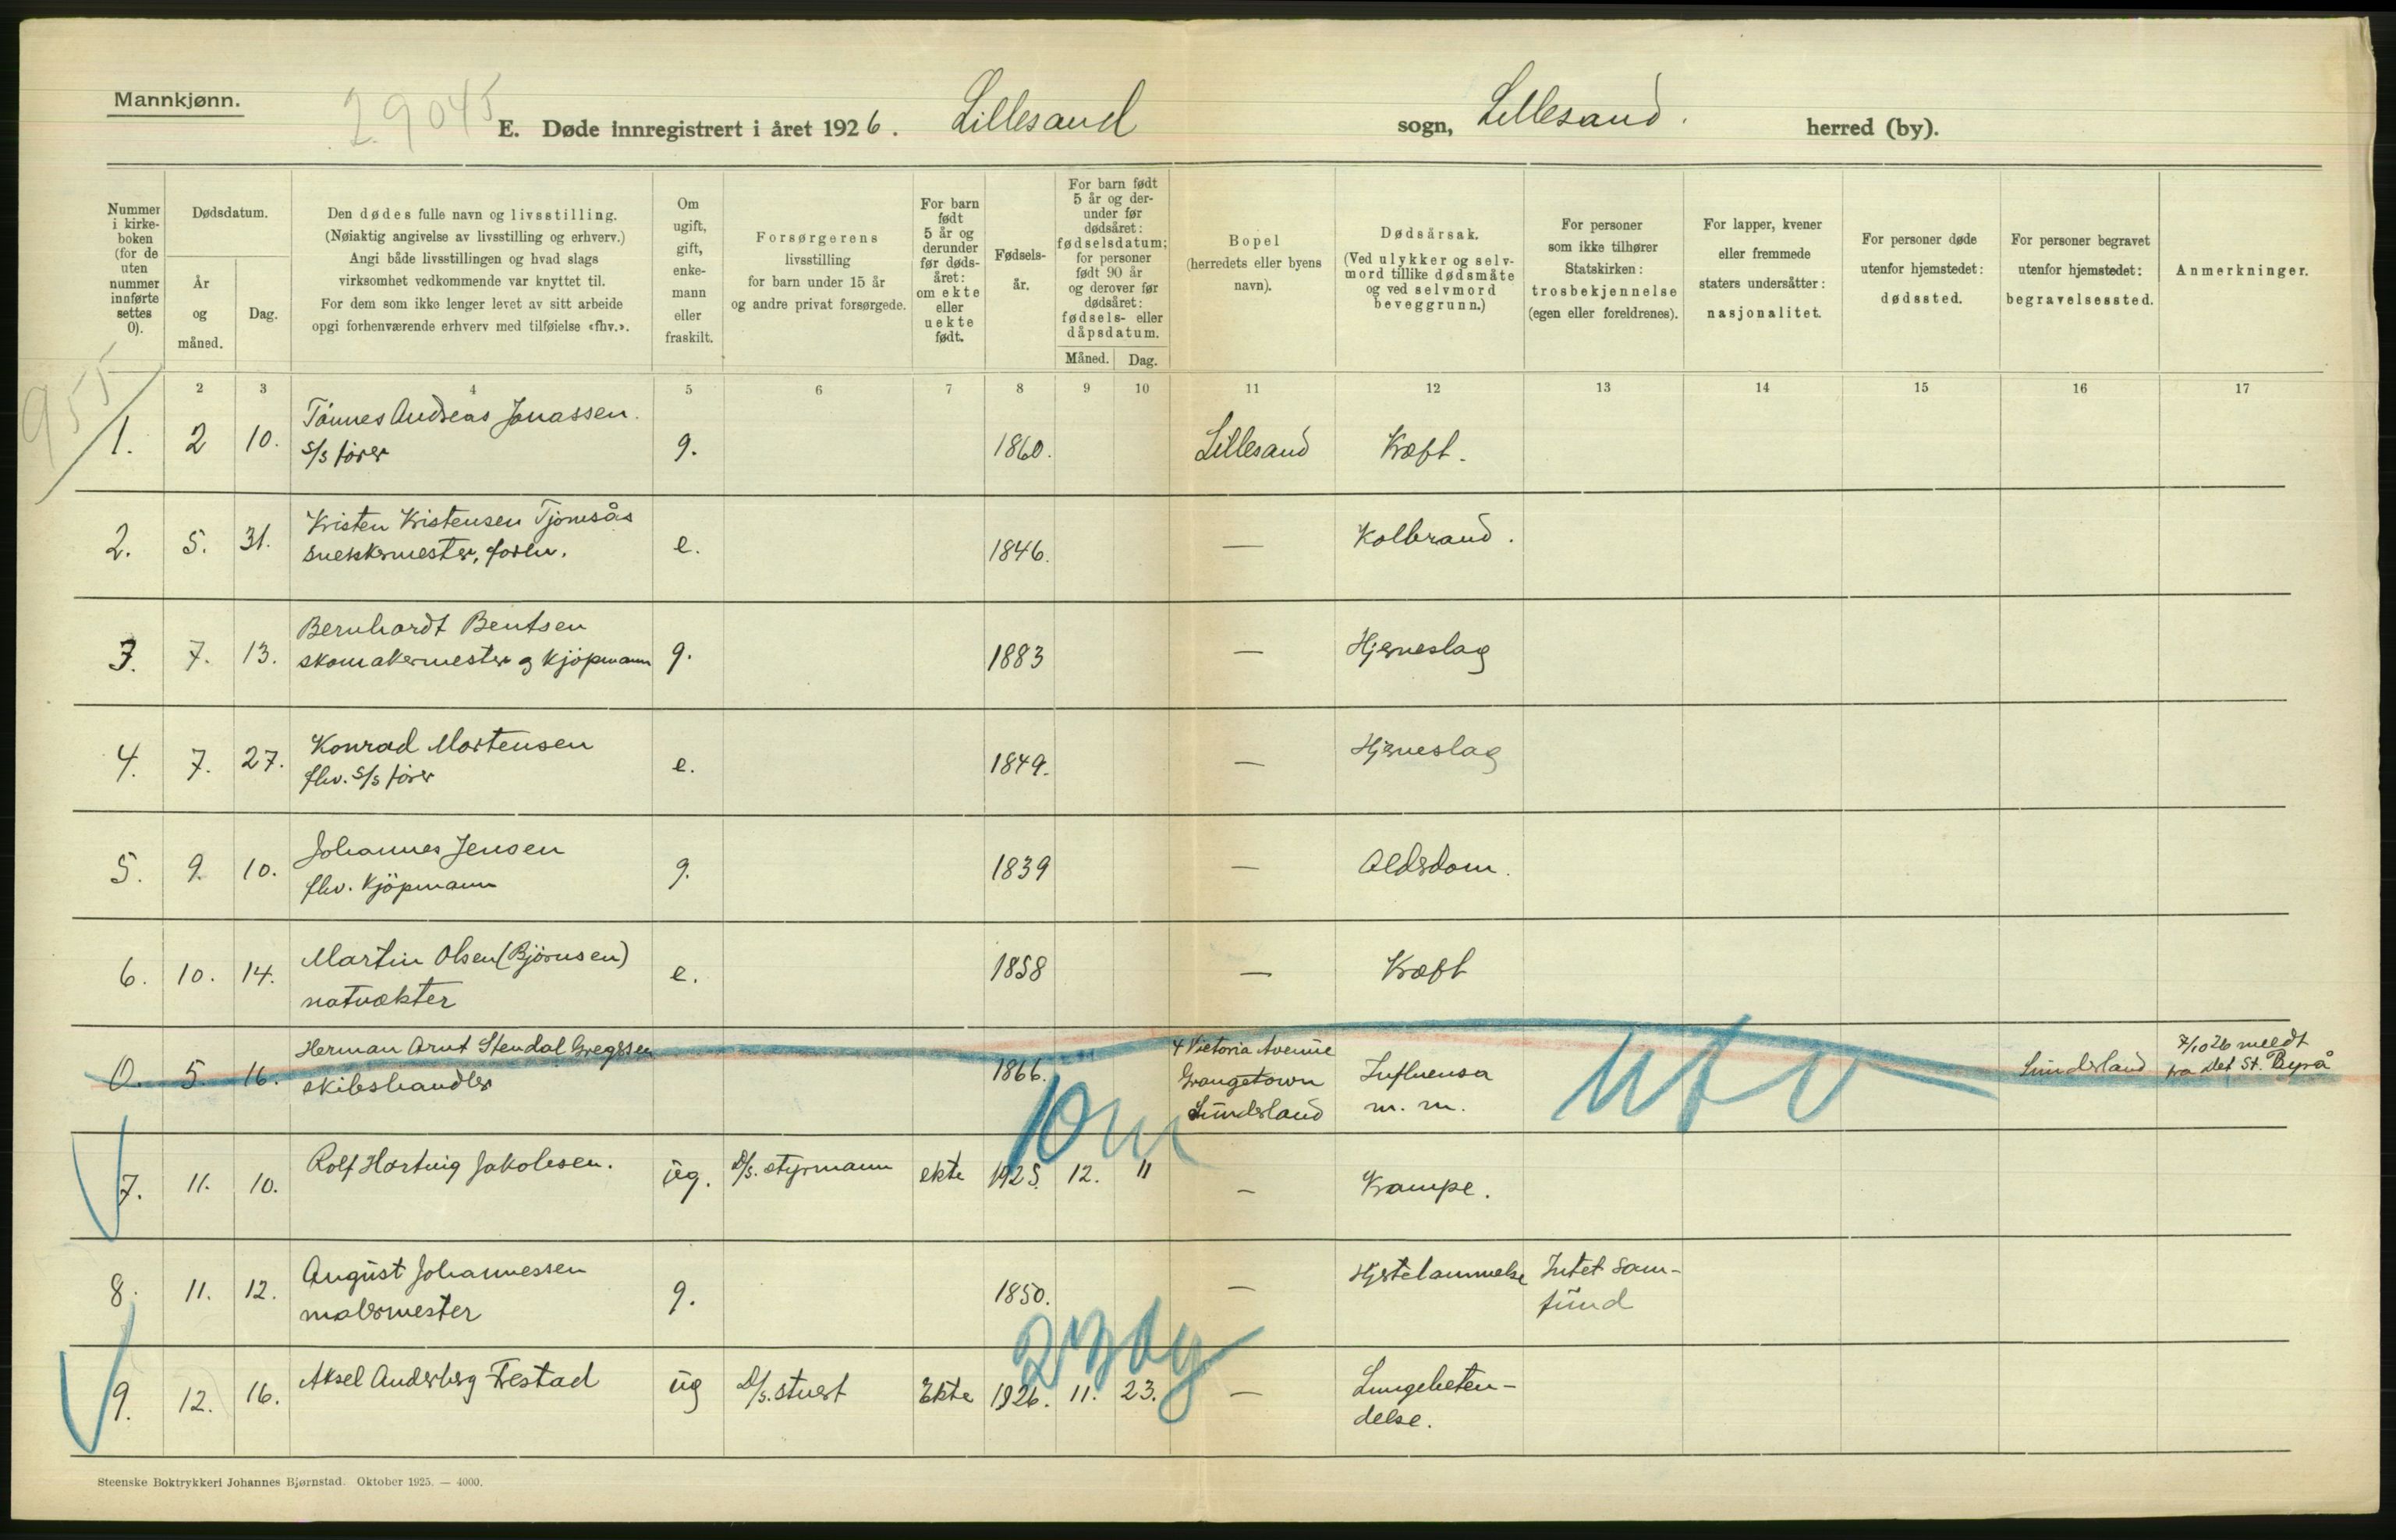 Mannkjønn.
29045
E. Døde innregistrert i året 1926. Lillesand sogn, Lillesand. herred (by).
Nummer i kirke-boken (for de uten nummer innførte settes 0).
Dødsdatum.
År og måned.
Dag.
Den dødes fulle navn og livsstilling.
(Nøiaktig angivelse av livsstilling og erhverv.)
Angi både livsstillingen og hvad slags
virksomhet vedkommende var knyttet til.
For dem som ikke lenger levet av sitt arbeide
opgi forhenværende erhverv med tilføielse «fhv.».
Om ugift, gift, enke-mann eller fraskilt.
Forsørgerens
livsstilling
for barn under 15 år
og andre privat forsørgede.
For barn født 5 år og derunder før døds-året: om ekte eller uekte født.
Fødsels-år.
For barn født 5 år og der-under før dødsåret: fødselsdatum; for personer født 90 år og derover før dødsåret: fødsels- eller dåpsdatum.
Måned. Dag.
Bopel
(herredets eller byens navn).
Dødsårsak.
(Ved ulykker og selv-mord tillike dødsmåte og ved selvmord beveggrunn.)
For personer som ikke tilhører Statskirken: trosbekjennelse (egen eller foreldrenes).
For lapper, kvener eller fremmede staters undersåtter: nasjonalitet.
For personer døde utenfor hjemstedet: dødssted.
For personer begravet utenfor hjemstedet: begravelsessted.
Anmerkninger.
955
2 3 4 5 6 7 8 9 10 11 12 13 14 15 16 17
1. 2 10. Tønnes Andreas Jonassen. g. 1860. Lillesand Kræft.
s/s fører
2. 5. 31. Kristen Kristensen Tjømsås e. 1846. — Kolbrand.
snekkermester, forhv.
3. 7. 13. Bernhardt Bentsen g. 1883 — Hjerneslag
skomakermester og kjøpmann
4. 7. 27. Konrad Mortensen e. 1849. — Hjerneslag
fhv. s/s fører
5. 9. 10. Johannes Jensen g. 1839 — Alderdom.
fhv. kjöpmann
6. 10. 14. Martin Olsen (Björnsen) e. 1858 — Kræft
natvækter
0. 5. 16. Herman Arnt Stendal Gregssen 1866. 4 Victoria Avenue Influensa Sünderland 7/10 26 meldt
skibshandler Grangetown m. m. fra Det St. Byrå
Sünderland
10 m
utv
7. 11. 10. Rolf Hartvig Jakobsen. ug. D/s. styrmann ekte 1925. 12. 11 — Krampe.
8. 11. 12. August Johannessen g. 1850. — Hjertelammelse Intet Sam-
malermester fund
23 dg
9. 12. 16. Aksel Anderberg Trestad ug D/s. stuert Ekte 1926. 11. 23. — Lungebeten-
delse.
Steenske Boktrykkeri Johannes Bjørnstad. Oktober 1925. — 4000.